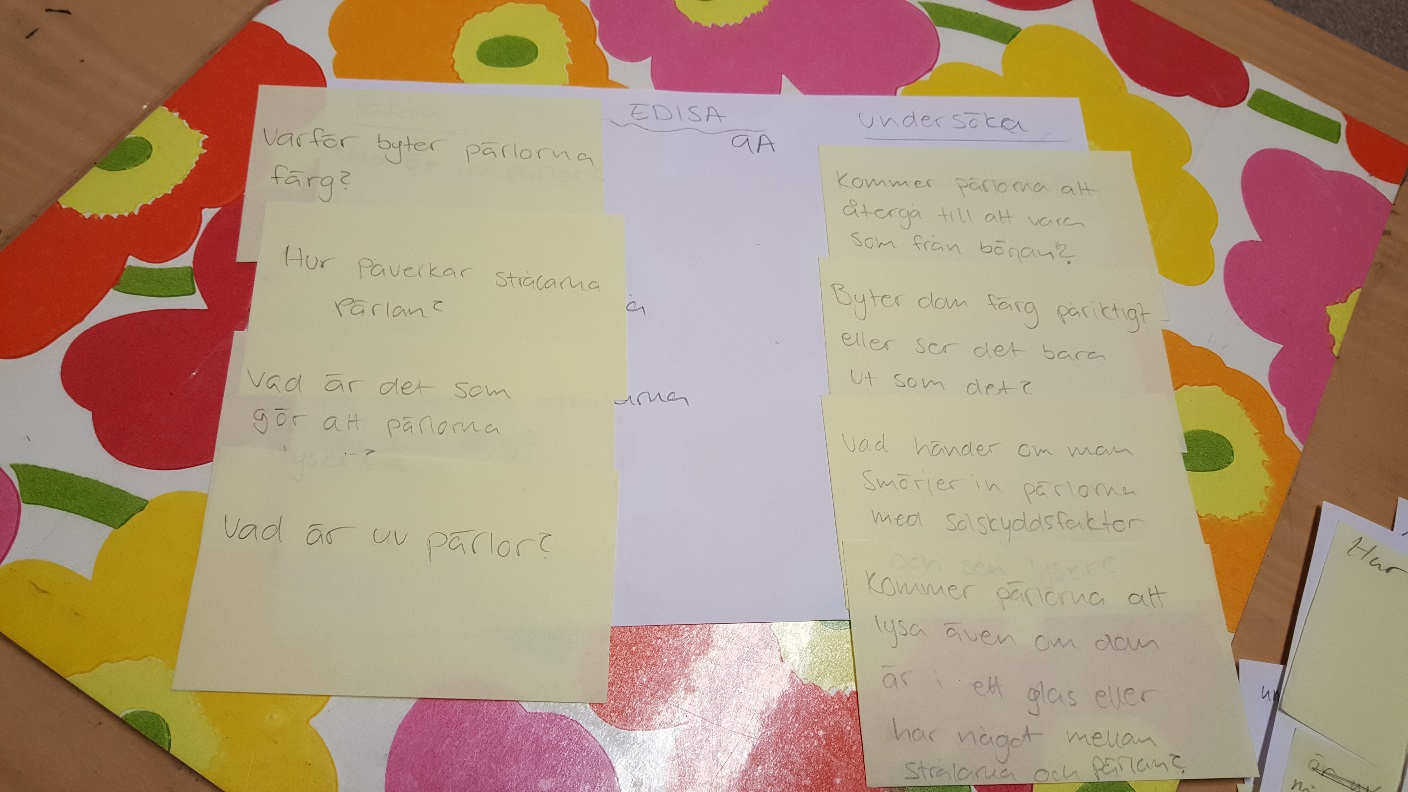 EDISA
9A
Varför byter pärlorna
färg?
Hur påverkar strålarna
pärlan?
Vad är det som
gör att pärlorna
Vad är uv pärlor?
undersöka
Kommer pärlorna att
återgå till att vara
som från början?
Byter dom färg påriktigt
eller ser det bara
ut som det?
Vad händer om man
smörjer in pärlorna
med solskyddsfaktor
och sen lyser?
Kommer pärlorna att
lysa även om dom
är i ett glas eller
har något mellan
strålarna och pärlan?
Har